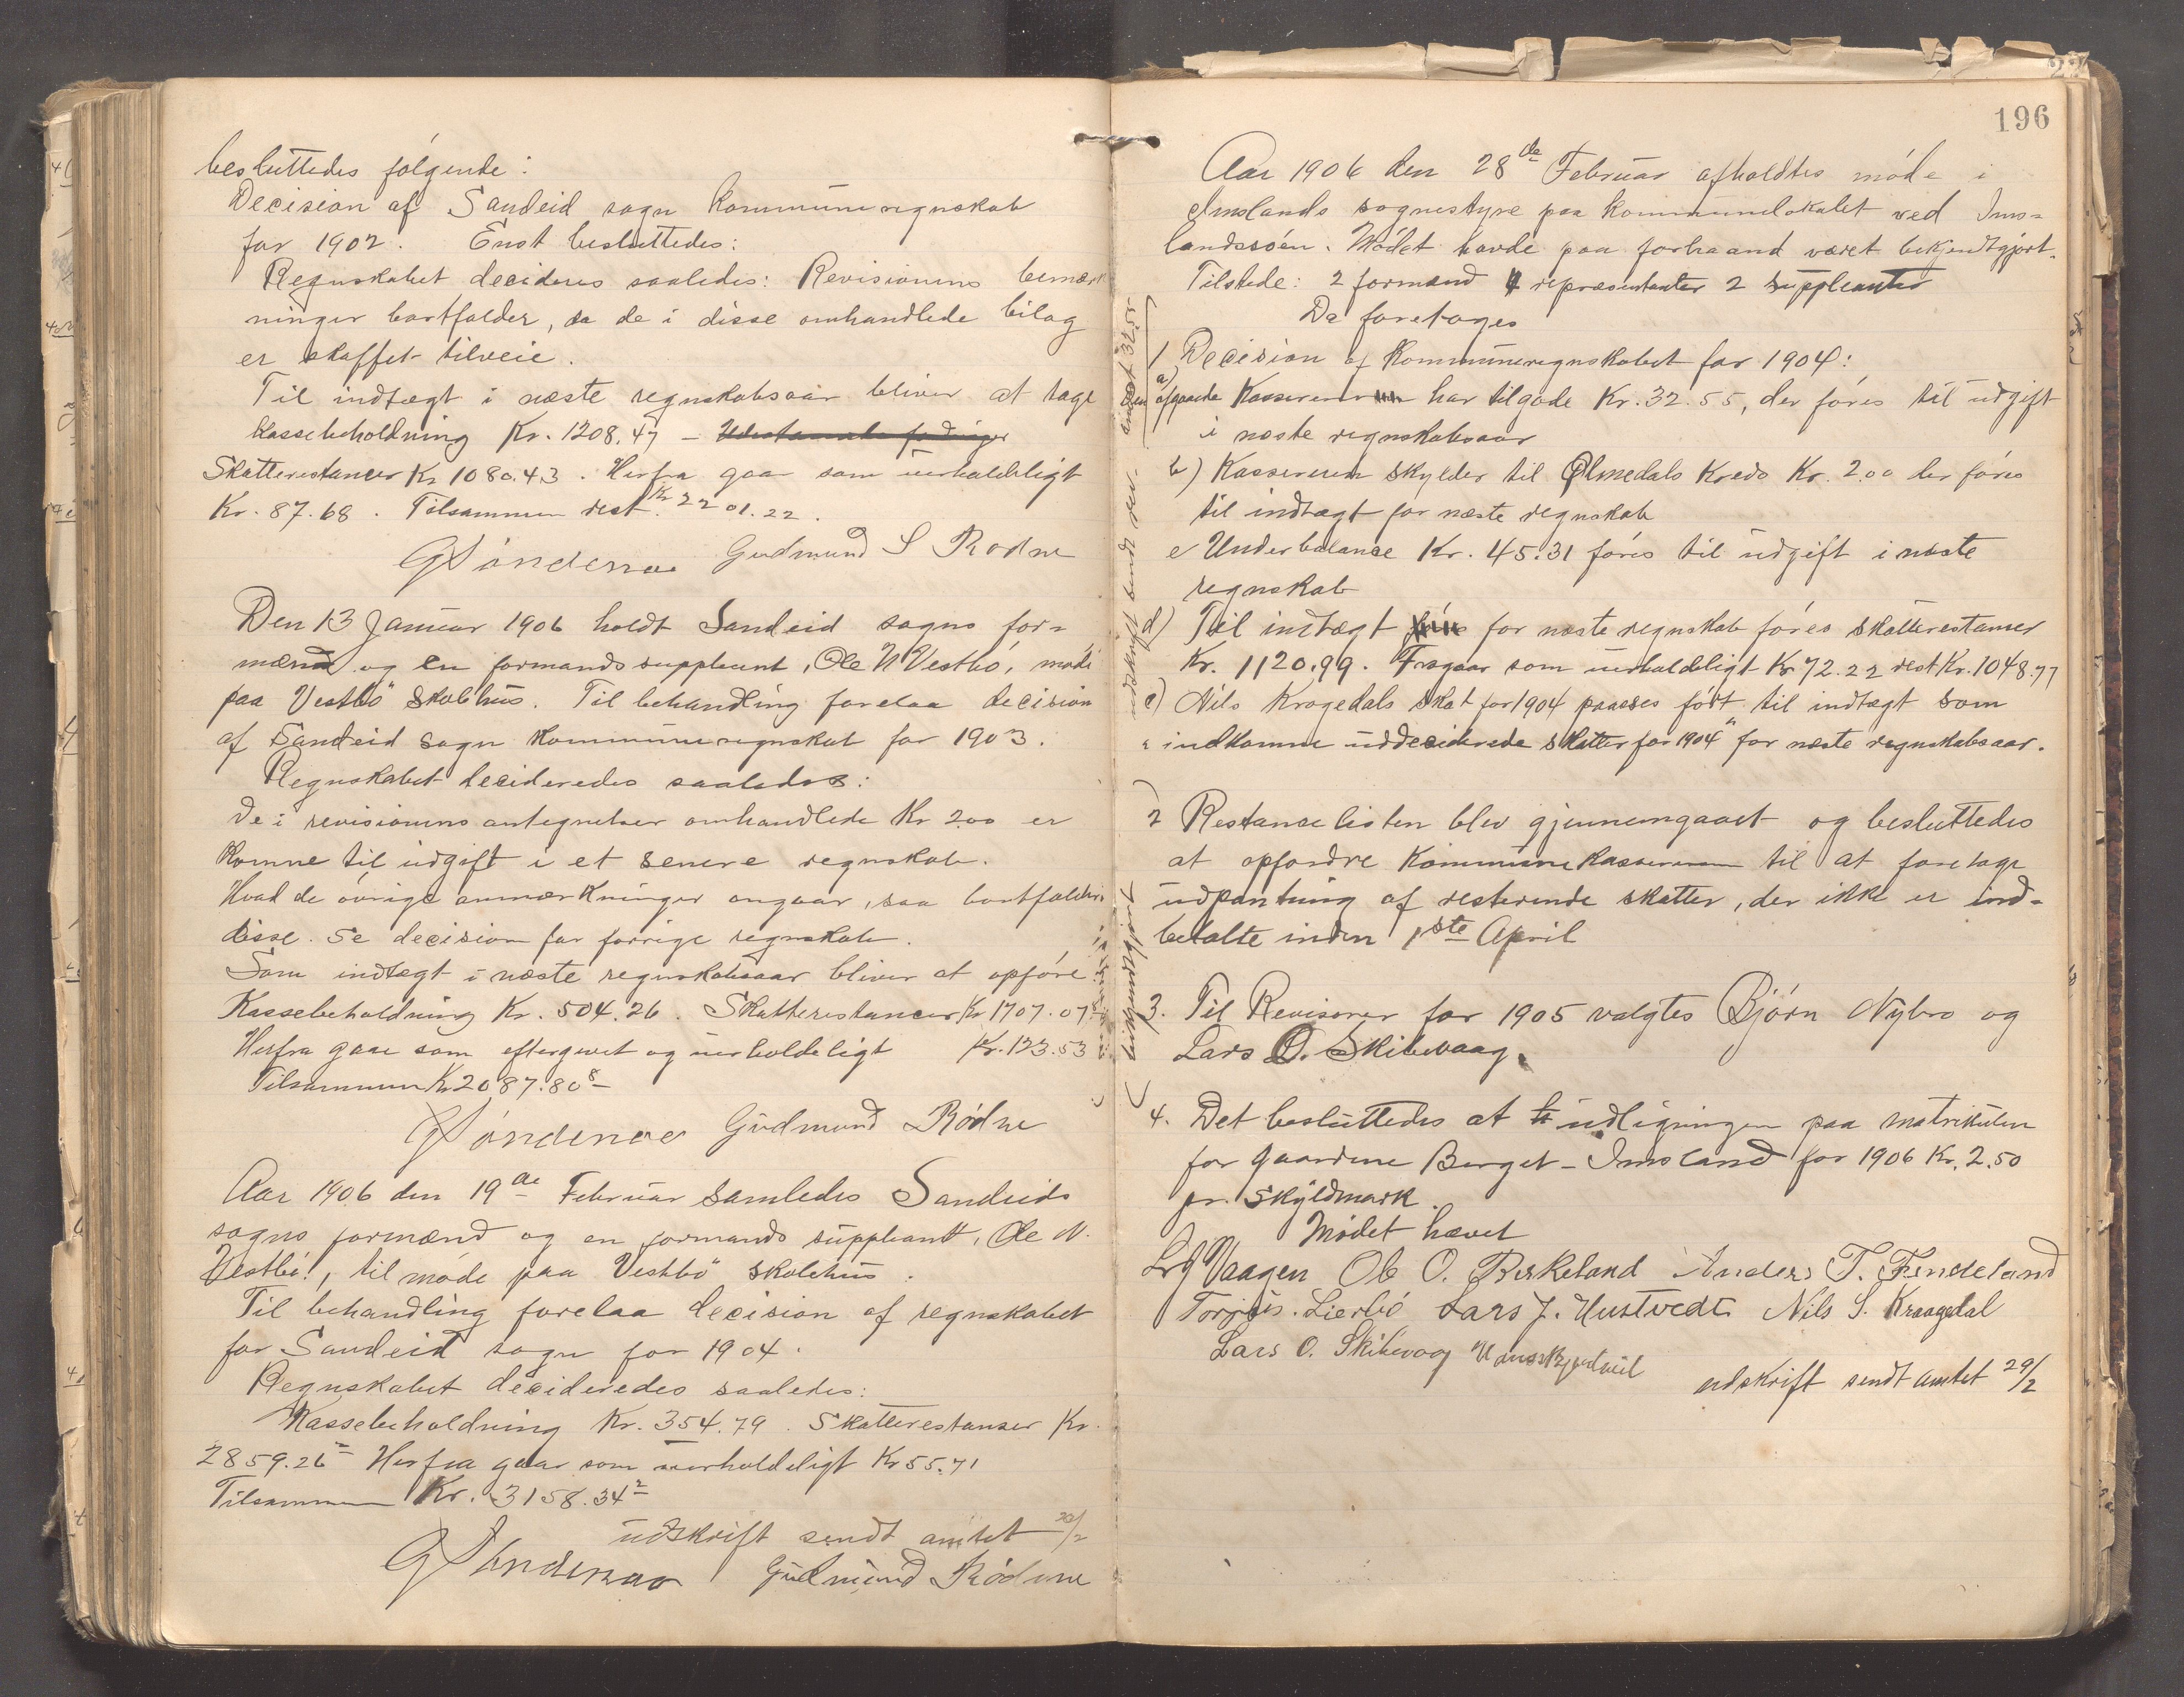 besluttedes følgende:
Decision af Sandeid sogn kommuneregnskab
for 1902. Enst besluttedes:
Regnskabet decideres saaledes: Revisionens bemærk
ninger bortfalder, da de i disse omhandlede bilag
er skaffet tilveie.
Til indtægt i næste regnskabsaar bliver at tage
Kassebeholdning Kr. 1208.47 –
Skatterestancer Kr 1080.43. Herfra gaar som uerholdeligt
Kr. 87.68. Tilsammen rest Kr 2201.22.
G Söndenaa Gudmund S Rødne
Den 13 Januar 1906 holdt Sandeid sogns for=
mænd og en formandssuppleant, Ole N Vestbö, möde
paa Vestbö skolehus. Til behandling forelaa decision
af Sandeid sogn kommuneregnskab for 1903.
Regnskabet decideredes saaledes:
De i revisionens antegnelser omhandlede Kr 2.00 er
komne til udgift i et senere regnskab.
Hvad de övrige anmærkninger angaar, saa bortfalder
disse. Se decision for forrige regnskab.
Som indtægt i næste regnskabsaar bliver at opføre
Kassebeholdning Kr. 504.26. Skatterestancer Kr 1707.07
Herfra gaar som eftergivet og uerholdeligt Kr. 123.53
Tilsammen Kr 2087.80 8
G Söndenaa Gudmund Rödne
Aar 1906 den 19de Februar samledes Sandeids
sogns formænd og en formands suppleant, Ole N.
Vestbö, til möde paa Vestbö skolehus.
Til behandling forelaa decision af regnskabet
for Sandeid sogn for 1904.
Regnskabet decideredes saaledes:
Kassebeholdning Kr. 354.79. Skatterestanser Kr.
2859.26 2 Herfra gaar som uerholdeligt Kr 55.71
Tilsammen Kr. 3158.34 2
udskrift sendt amtet 20/2
G Söndenaa Gudmund Rödne
196
Aar 1906 den 28de Februar afholdtes møde i
Imslands sognestyre paa kommunelokalet ved Ims=
landssøen. Mødet havde paa forhaand været bekjendtgjort.
Tilstede: 2 formænd 4 repræsentanter 2 suppleanter
Da foretoges
1, Decision af Kommuneregnskabet for 1904:
a) Den afgaaede Kasserer har tilgode Kr. 32.55, der føres til udgift
i næste regnskabsaar
b) Kassereren skylder til Ølmedals Kreds Kr. 2.00 der føres
til indtægt for næste regnskab
c Underbalance Kr. 45.31 føres til udgift i næste
regnskab
d) Til indtægt for næste regnskab föres skatterestancer
Kr. 1120.99. Fragaar som uerholdeligt Kr 72.22 rest Kr. 1048.77
e) Nils Kragedals skat for 1904 paasees fört til indtægt som
"indkomne uddeciderede skatter for 1904" for næste regnskabsaar.
2 Restancelisten blev gjennemgaaet og besluttedes
at opfordre Kommunekassereren til at foretage
udpantning af resterende skatter, der ikke er ind=
betalte inden 1ste April
3. Til Revisorer for 1905 valgtes Bjørn Nybro og
Lars O. Skibevaag.
4. Det besluttedes at udligningen paa matrikulen
for gaardene Berget – Imsland for 1906 Kr. 2.50
pr. skyldmark.
Mødet hævet
L G Vaagen Ole O. Birkeland Anders T. Fendeland
Torjus. Lierbö Lars J. Hustvedt Nils S. Kraagedal
Lars O. Skibevaag
udskrift sendt amtet 29/2